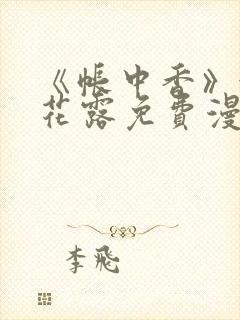 《帐中香》
花露免费漫
李飛